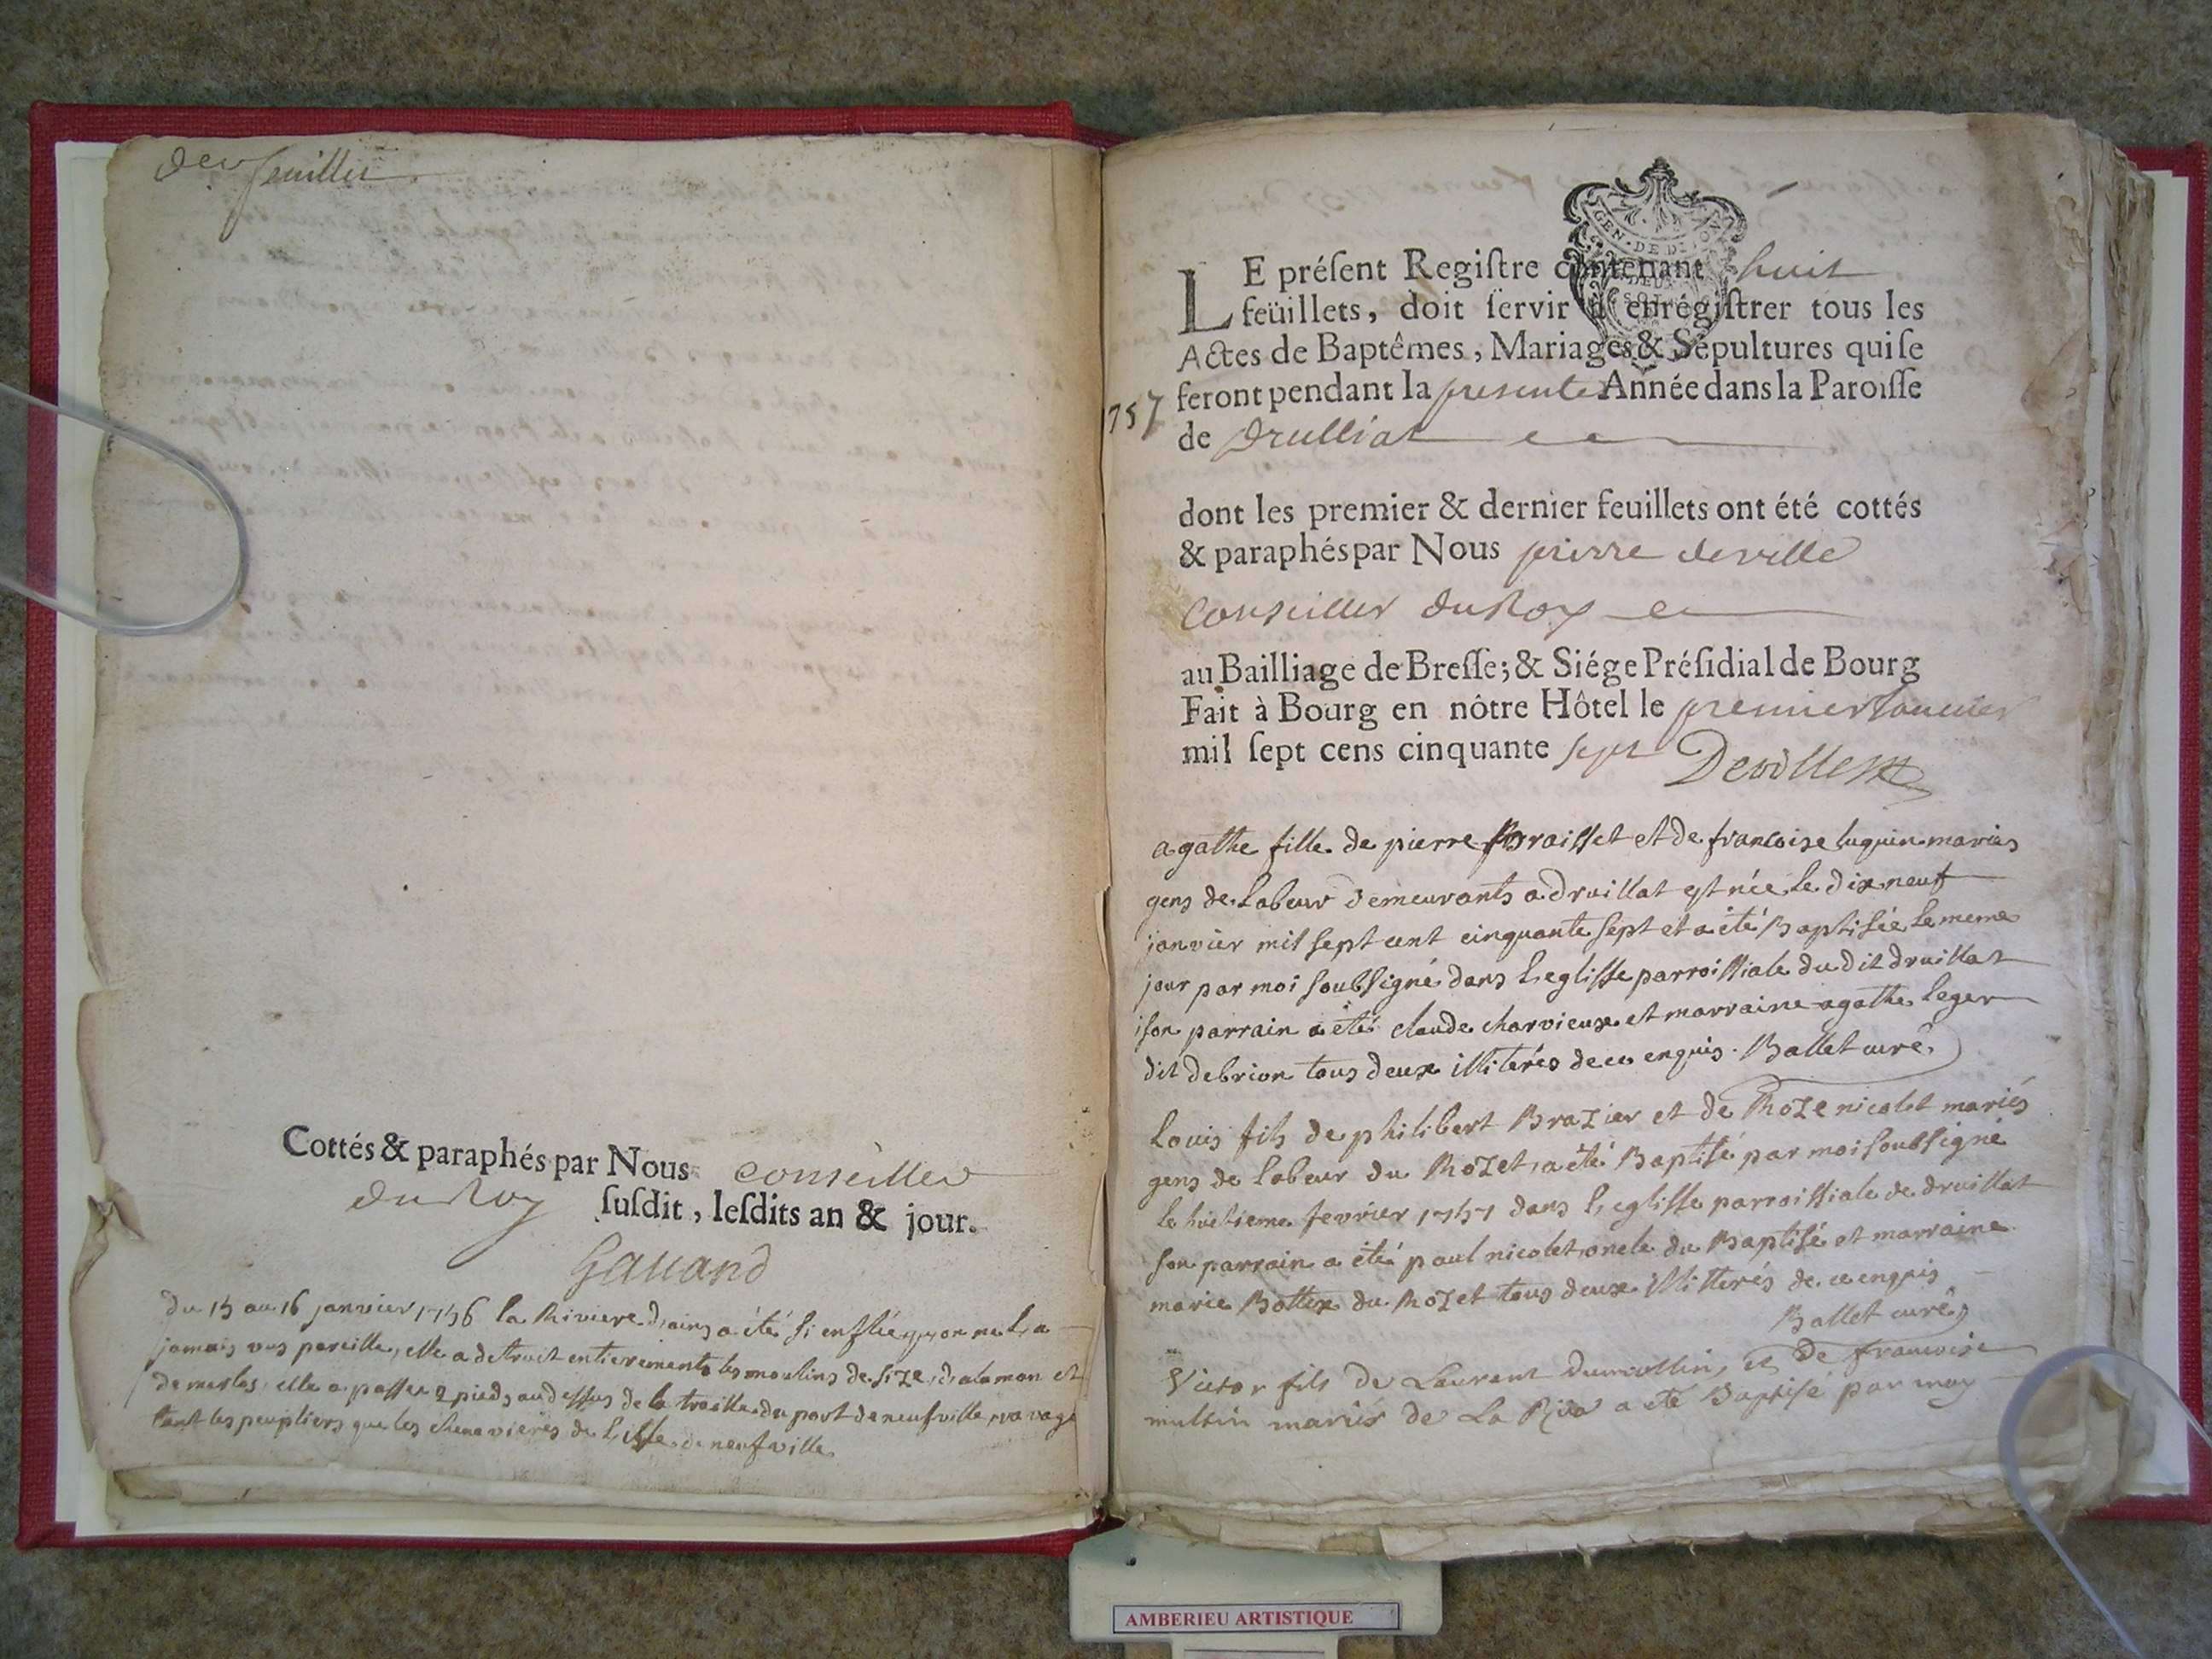 feuillet
Cottés & paraphés par Nous conseiller
du Roy susdit, lesdits an & jour.
Gauand
du 15 au 16 janvier 1756 la Riviere d'ains a été si enflée qu'on ne l'a
jamais vus pareille, elle a detruit entierement les moulins de size, d'alamon et
de merlos, elle a passée 2 pieds au dessus de la traille du port de neufville, ravagé
tant les peupliers que les chenevieres de l'isle de neufville
GEN · DE DIJON
DEUX
SOLS
LE présent Registre contenant huit
feüillets, doit servir à enrégistrer tous les
Actes de Baptêmes, Mariages & Sépultures qui se
feront pendant la presente Année dans la Paroisse
1757
de Drulliat
dont les premier & dernier feuillets ont été cottés
& paraphés par Nous pierre deville
Conseiller du Roy
au Bailliage de Bresse; & Siége Présidial de Bourg
Fait à Bourg en nôtre Hôtel le premier Januier
mil sept cens cinquante sept Deville
agathe fille de pierre Braisset et de francoise luquin maries
gens de labeur demeurants a druillat est née le dix neuf
janvier mil sept cent cinquante sept et a été Baptisée le meme
jour par moi soubsigné dans l'eglisse parroissiale du dit druillat
son parrain a été claude charvieux et marraine agathe leger
dit debrion tous deux illiterés de ce enquis. Ballet curé
Louis fils de philibert Brazier et de Roze nicolet mariés
gens de labeur du Rozet, a été Baptisé par moi soubsigné
le huitieme fevrier 1757 dans l'eglisse parroissiale de druillat
son parrain a été paul nicolet oncle du Baptisé et marraine
marie Bottex du Rozet tous deux illitterés de ce enquis
Ballet curé
Victor fils de Laurent dumollin, et de francoise
multin mariés de La Riva a eté Baptisé par moy
AMBERIEU ARTISTIQUE